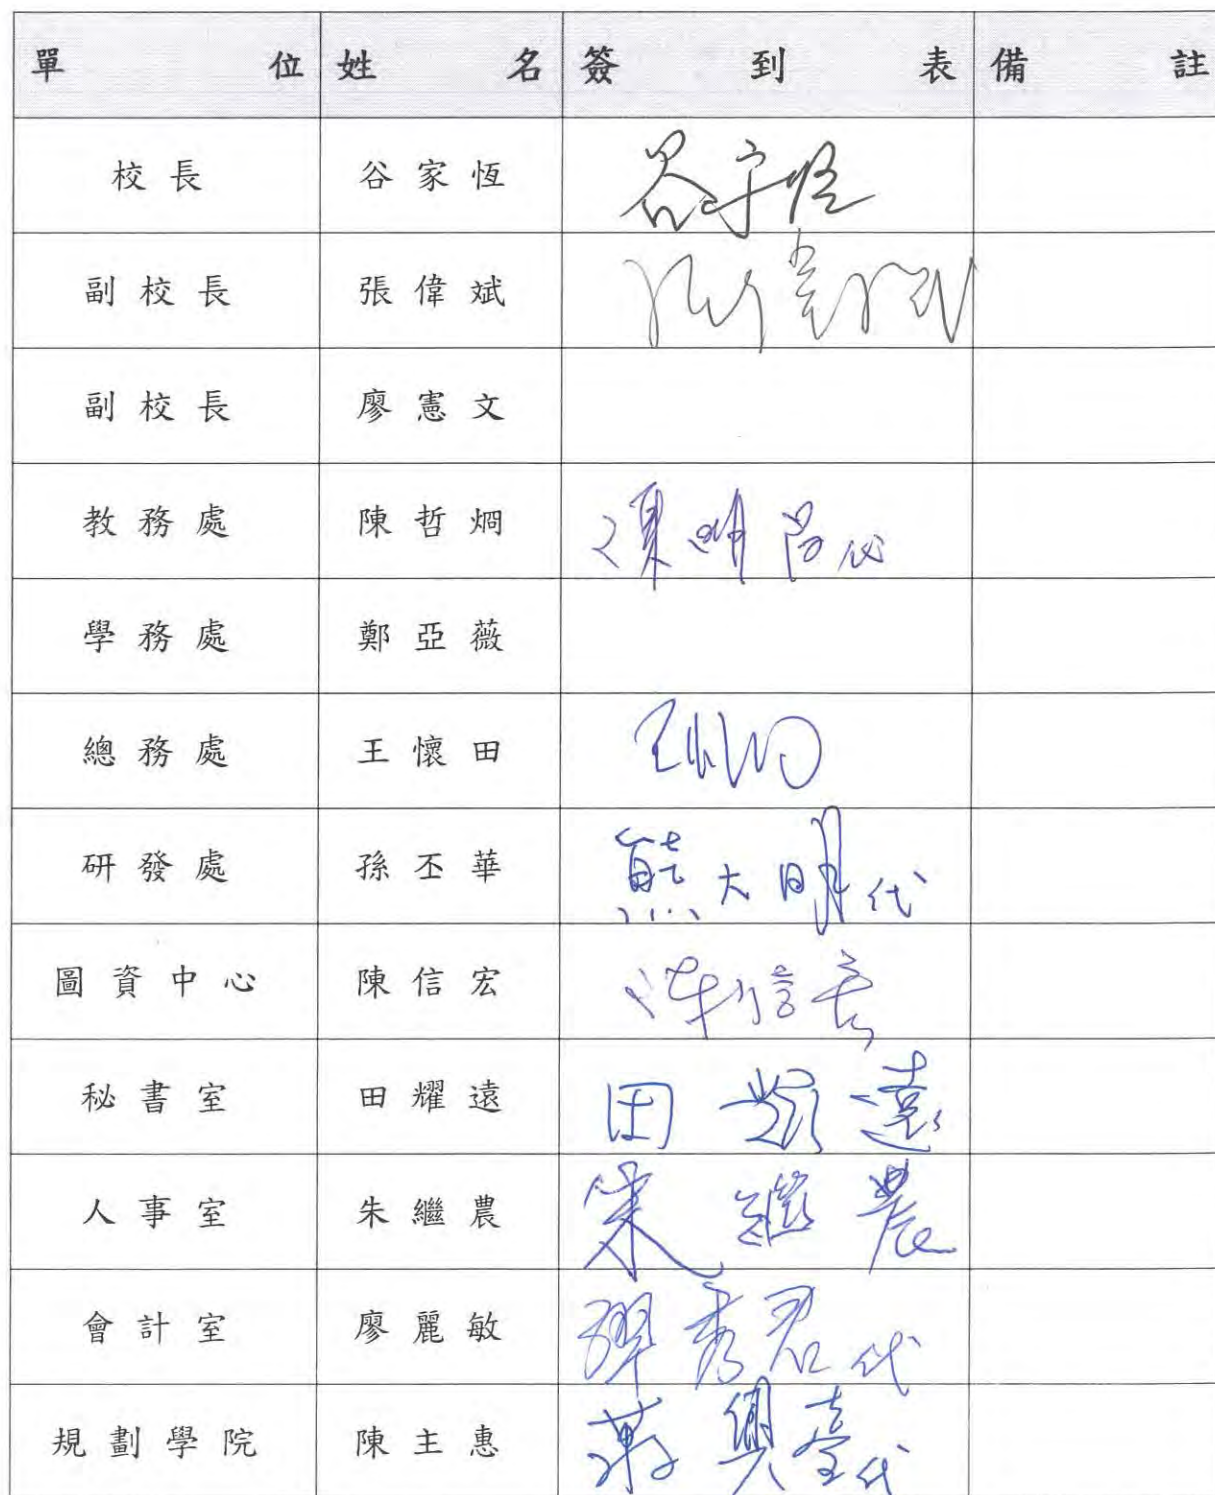 單位 姓名 簽到表 備註
校長 谷家恆 谷家恆
副校長 張偉斌 張偉斌
副校長 廖憲文
教務處 陳哲炯 陳明昌代
學務處 鄭亞薇
總務處 王懷田 王懷田
研發處 孫丕華 熊大明代
圖資中心 陳信宏 陳信宏
秘書室 田耀遠 田耀遠
人事室 朱繼農 朱繼農
會計室 廖麗敏 秀君代
規劃學院 陳主惠 蔣興臺代